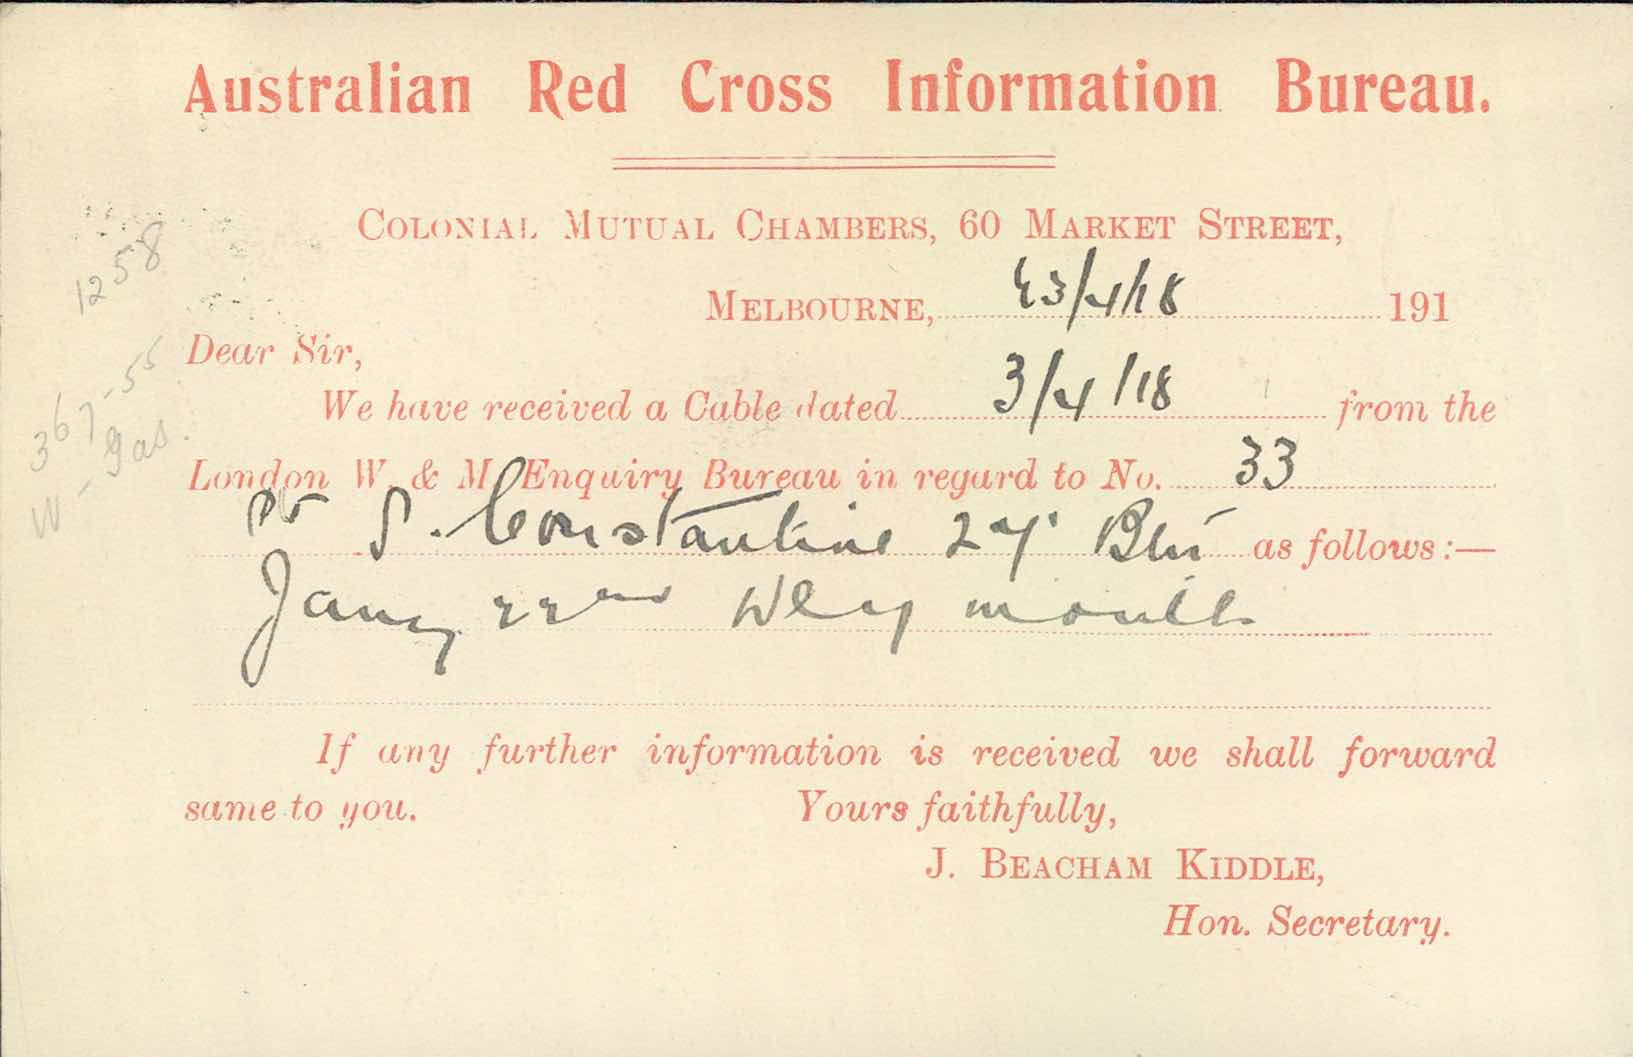 Australian Red Cross Information Bureau.
COLONIAL MUTUAL CHAMBERS, 60 MARKET STREET,
MELBOURNE, 23/4/18 191
Dear Sir,
We have received a Cable dated 3/4/18 from the
London W. & M. Enquiry Bureau in regard to No. 33
Pt S. Constantine 27. Btn as follows:—
Jany 22nd Weymouth
If any further information is received we shall forward
same to you. Yours faithfully,
J. BEACHAM KIDDLE,
Hon. Secretary.
1258
367-55
W- gas.